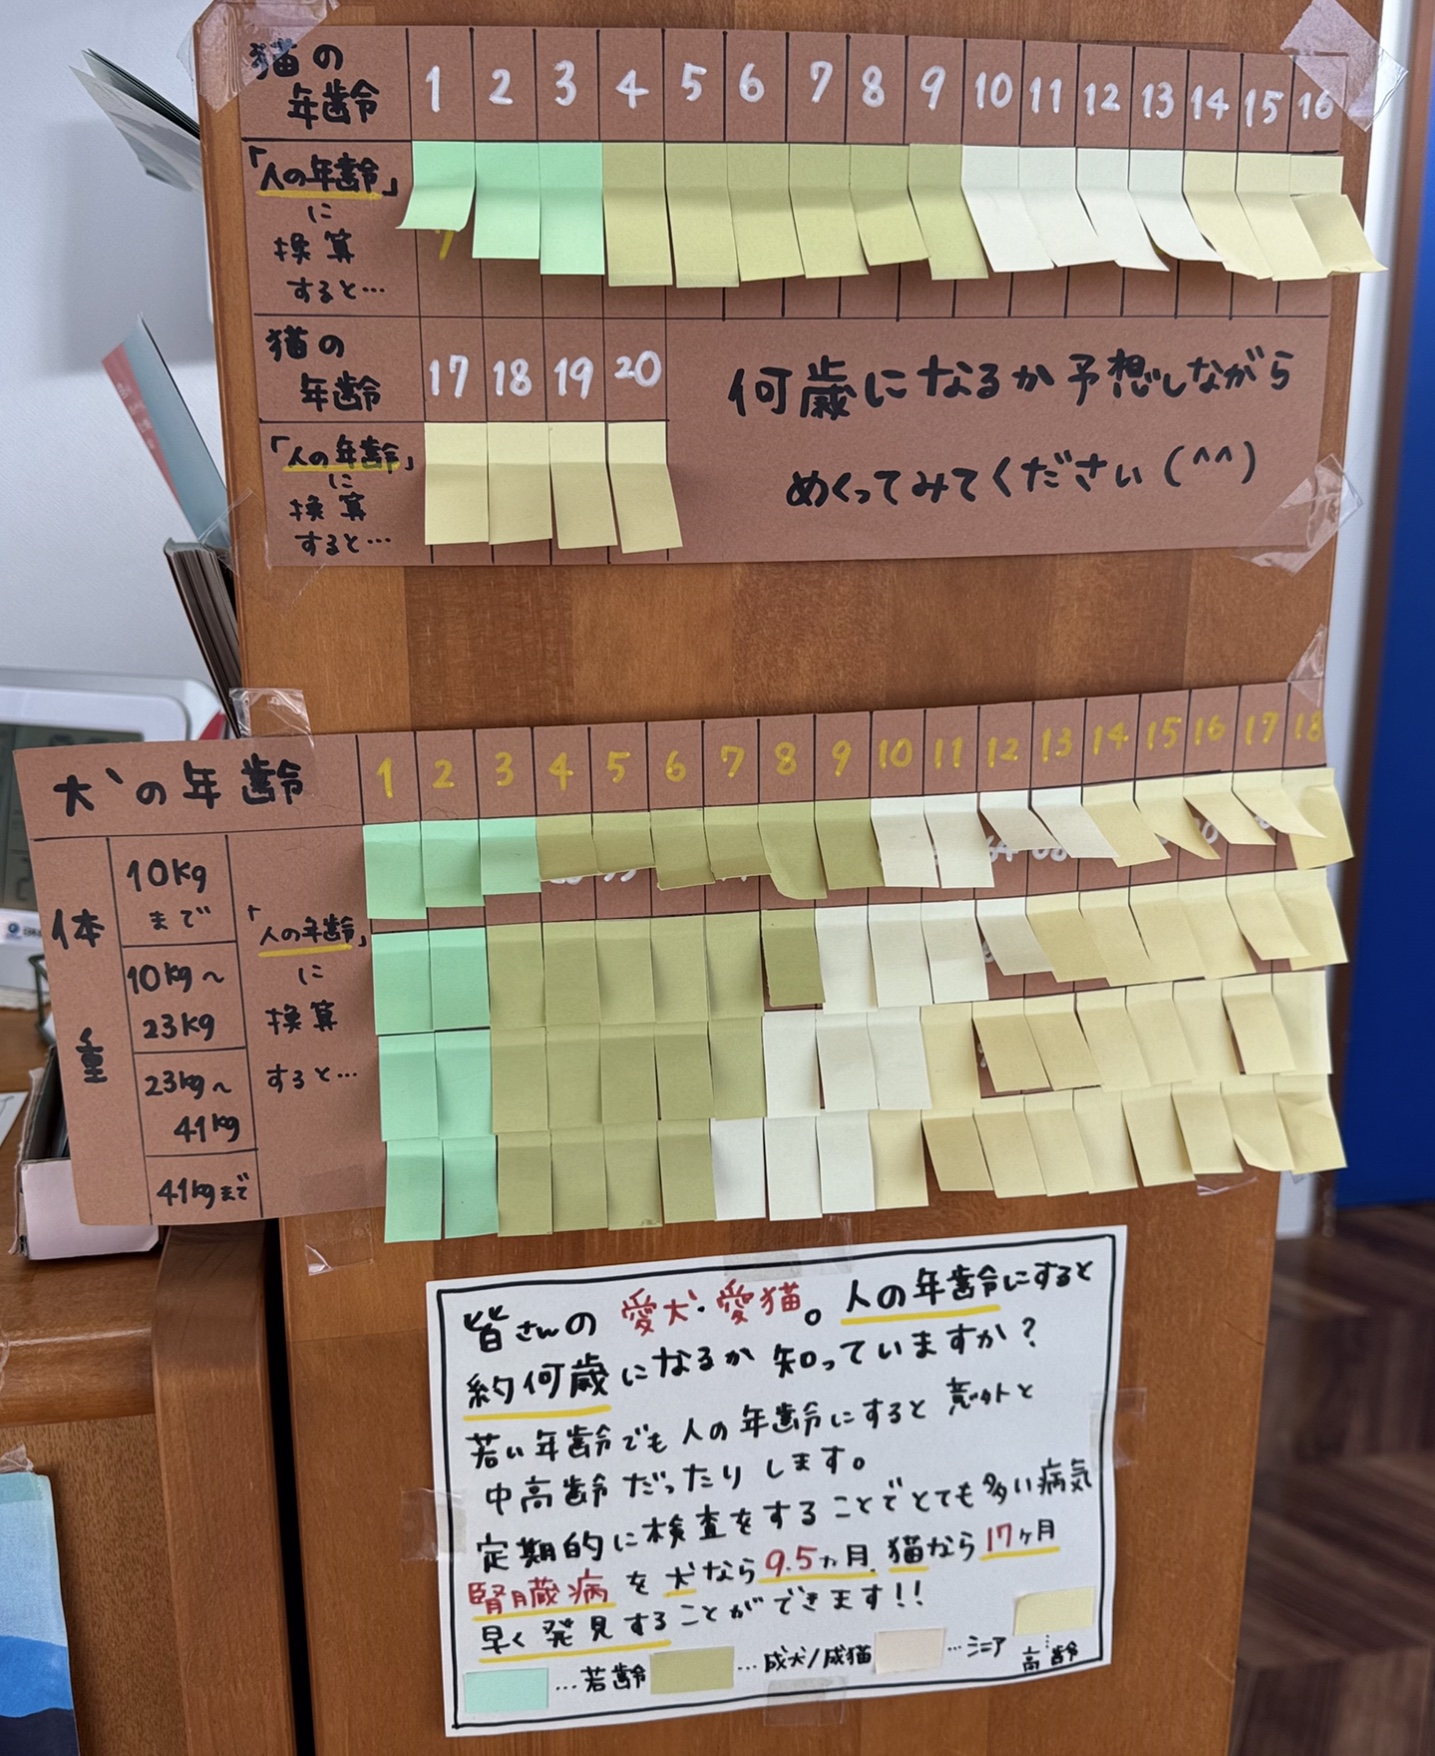 猫の
年齢
1 2 3 4 5 6 7 8 9 10 11 12 13 14 15 16
「人の年齢」
に
換算
すると…
猫の
年齢
17 18 19 20
「人の年齢」
に
換算
すると…
何歳になるか予想しながら
めくってみてください(^^)
犬の年齢
1 2 3 4 5 6 7 8 9 10 11 12 13 14 15 16 17 18
体重
10kg
まで
10kg~
23kg
23kg~
41kg
41kgまで
「人の年齢」
に
換算
すると…
皆さんの愛犬・愛猫。人の年齢にすると
約何歳になるか知っていますか?
若い年齢でも人の年齢にすると意外と
中高齢だったりします。
定期的に検査をすることでとても多い病気
腎臓病を犬なら9.5ヵ月、猫なら17ヶ月
早く発見することができます!!
…若齢 …成犬/成猫 …シニア …高齢